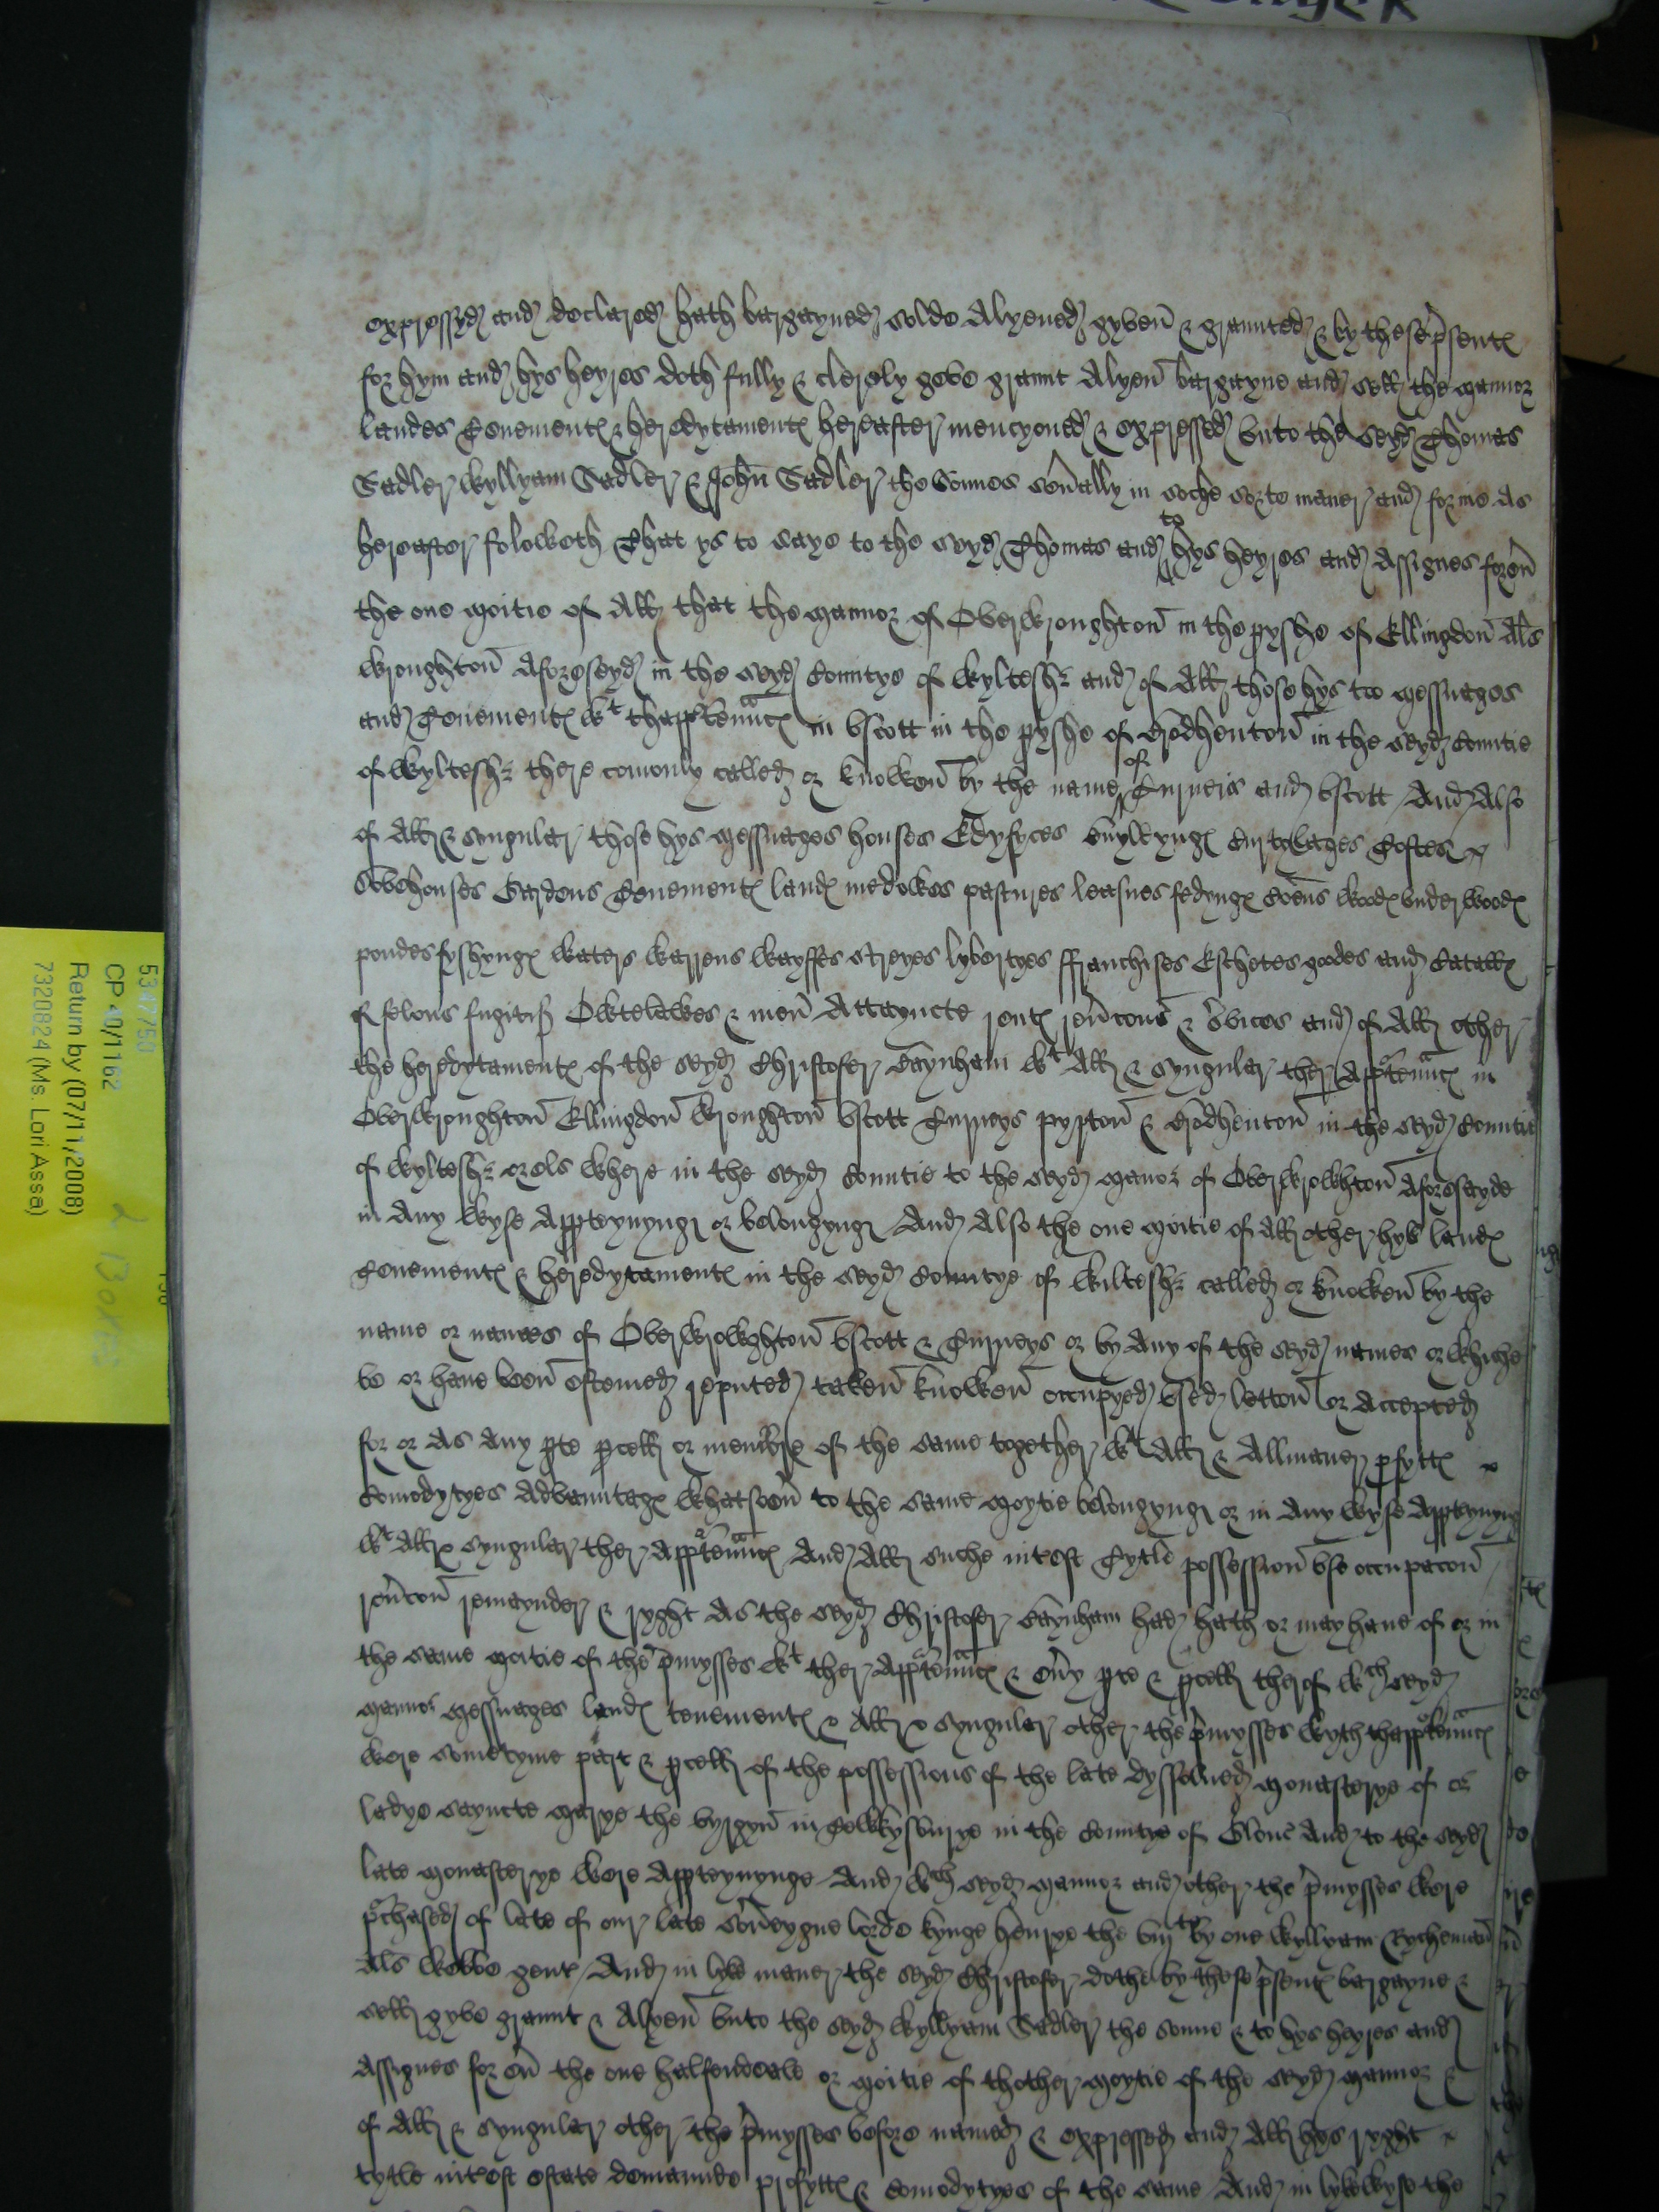 expressyd and declared hath bargayned solde Alyened gyven & graunted & by these psentes
for hym and hys heyres doth fully & clerely geve graunt Alyen bargayne and sell the mannor
landes Tenementes & heredytamentes hereafter mencyoned & expressed unto the seyd Thomas
Sadler Wyllyam Sadler & John Sadler the sonnes sevally in soche sorte maner and forme As
hereafter foloweth That ys to saye to the seyd Thomas and to hys heyres and Assignes for ev
the one moitie of All that the mannor of Overwroughton in the pyshe of Ellingdon Als
Wroughton Aforeseyd in the seyd Countye of Wyltesh and of All those hys too messuages
and Tenementes wt thapptenntes in Uscott in the pyshe of in the seyd Countie
of Wyltesh there comonly called or knowen by the name of Turneis and Uscott And Also
of All & synguler those hys messuages houses Edyfyces buyldynges Curtylages Toftes
Dovehouses Gardens Tenementes landes medowes pastures leasues fedynges Comens woodes underwoodes
pondes fyshynges waters warrens wayffes streyes lybertyes ffranchises Eschetes goodes and Catalles
of felons fugitis Owtelawes & men Attayncte rentes revcons & svices and of All other
the heredytamentes of the seyd Christofer Baynham wt All & synguler ther Apptenntes in
Overwroughton Ellingdon Wroughton Uscott Turneys pyrton & in the seyd Countie
of Wyltesh or els where in the seyd Countie to the seyd manor of Overwrowhton Aforesayde
in Any wyse Appteynyng or belongyng And Also the one moitie of All other hys landes
Tenementes & heredytamentes in the seyd Countye of Wiltesh called or knowen by the
name or names of Overwrowghton Uscott & Turneys or by Any of the seyd names or whiche
be or have been estemed reputed taken knowen occupyed used letton or Accepted
for or As Any pte pcell or membre of the same together wt All & Allmaner pfyttes
Comodytyes Advauntages whatsoev to the same moytie belongyng or in Any wyse Appteynyng
wt All & synguler ther Apptenntes And All suche intest Tytle possession use occupacon
revcon remaynder & ryght As the seyd Christofer Baynham had hath or may have of or in
the same moitie of the pmysses wt ther Apptenntes & evy pte & pcell therof wch seyd
mannor messuages landes tenementes & All & synguler other the pmysses wyth thapptenntes
were sometyme part & pcell of the possessions of the late dyssolued monasterye of or
ladye Sayncte Marye the vyrgyn in Tewkysburye in the Countye of Glouc And to the seyd
late monasterye were Appteynynge And wch seyd mannor and other the pmysses were
pchased of late of our late sovreygne lorde kynge henrye the viijth by one Wyllyam Rycheman
Als Webbe gent And in lyke maner the seyd Christofer dothe by these psentes bargayne &
sell gyve graunt & Alyen unto the seyd Wyllyam Sadler the sonne & to hys heyres and
Assignes for ev the one halfendeale or moitie of thother moytie of the seyd mannor &
of All & synguler other the pmysses before named & expressed and All hys ryght
tytle intest estate demaunde profyttes & Comodytyes of the same And in lykewyse the
5347750
CP 40/1162
Return by (07/11/2008)
7320824 (Ms. Lori Assa)
2 Boxes